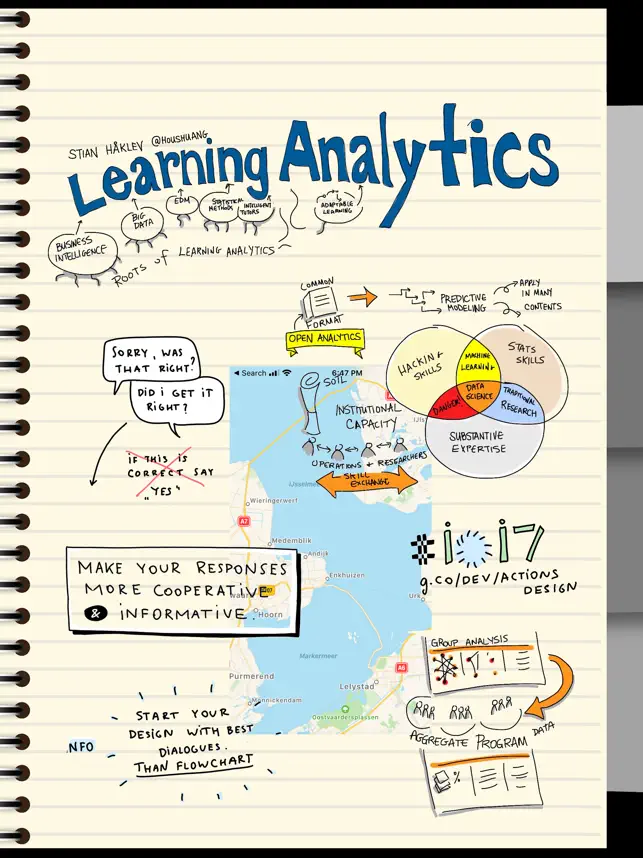 STIAN HÅKLEV @HOUSHUANG
Learning Analytics
BUSINESS
INTELLIGENCE
BIG
DATA
EDM
STATISTICAL
METHODS
INTELLIGENT
TUTORS
ADAPTABLE
LEARNING
ROOTS of LEARNING ANALYTICS
COMMON
FORMAT
OPEN ANALYTICS
PREDICTIVE
MODELING
APPLY
IN MANY
CONTENTS
HACKING
SKILLS
MACHINE
LEARNING
STATS
SKILLS
DATA
SCIENCE
DANGER
TRADITIONAL
RESEARCH
SUBSTANTIVE
EXPERTISE
SORRY, WAS
THAT RIGHT?
DID i GET iT
RIGHT?
iF THIS iS
CORRECT SAY
"YES"
Search
6:47 PM
SOIL
INSTITUTIONAL
CAPACITY
OPERATIONS + RESEARCHERS
SKILL
EXCHANGE
Wieringerwerf
A7
Medemblik
Andijk
Enkhuizen
Hoorn
Urk
Markermeer
A6
Purmerend
Lelystad
Monnickendam
Oostvaardersplassen
MAKE YOUR RESPONSES
MORE COOPERATIVE
& iNFORMATIVE.
#io17
g.co/DEV/ACTIONS
DESIGN
GROUP ANALYSIS
DATA
AGGREGATE PROGRAM
%
START YOUR
DESIGN WITH BEST
DIALOGUES.
THAN FLOWCHART
NFO